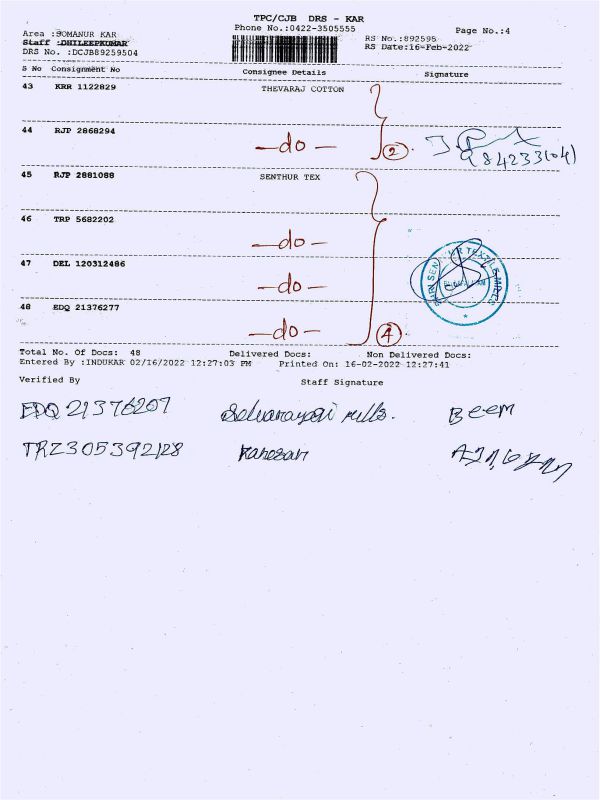 TPC/CJB DRS - KAR
Area :SOMANUR KAR
Phone No.:0422-3505555
RS No.:892595
Page No.:4
Staff :DHILEEPKUMAR
RS Date:16-Feb-2022
DRS No. :DCJB89259504
S No Consignment No Consignee Details Signature
43 KRR 1122829 THEVARAJ COTTON
44 RJP 2868294
—do— 2
84233(04)
45 RJP 2881088 SENTHUR TEX
46 TRP 5682202
—do—
47 DEL 120312486
—do—
48 EDQ 21376277
—do— 4
TEXTILE MILLS
Total No. Of Docs: 48 Delivered Docs: Non Delivered Docs:
Entered By :INDUKAR 02/16/2022 12:27:03 PM Printed On: 16-02-2022 12:27:41
Verified By Staff Signature
EDQ 21376207 mills. BEEM
TRZ305392128